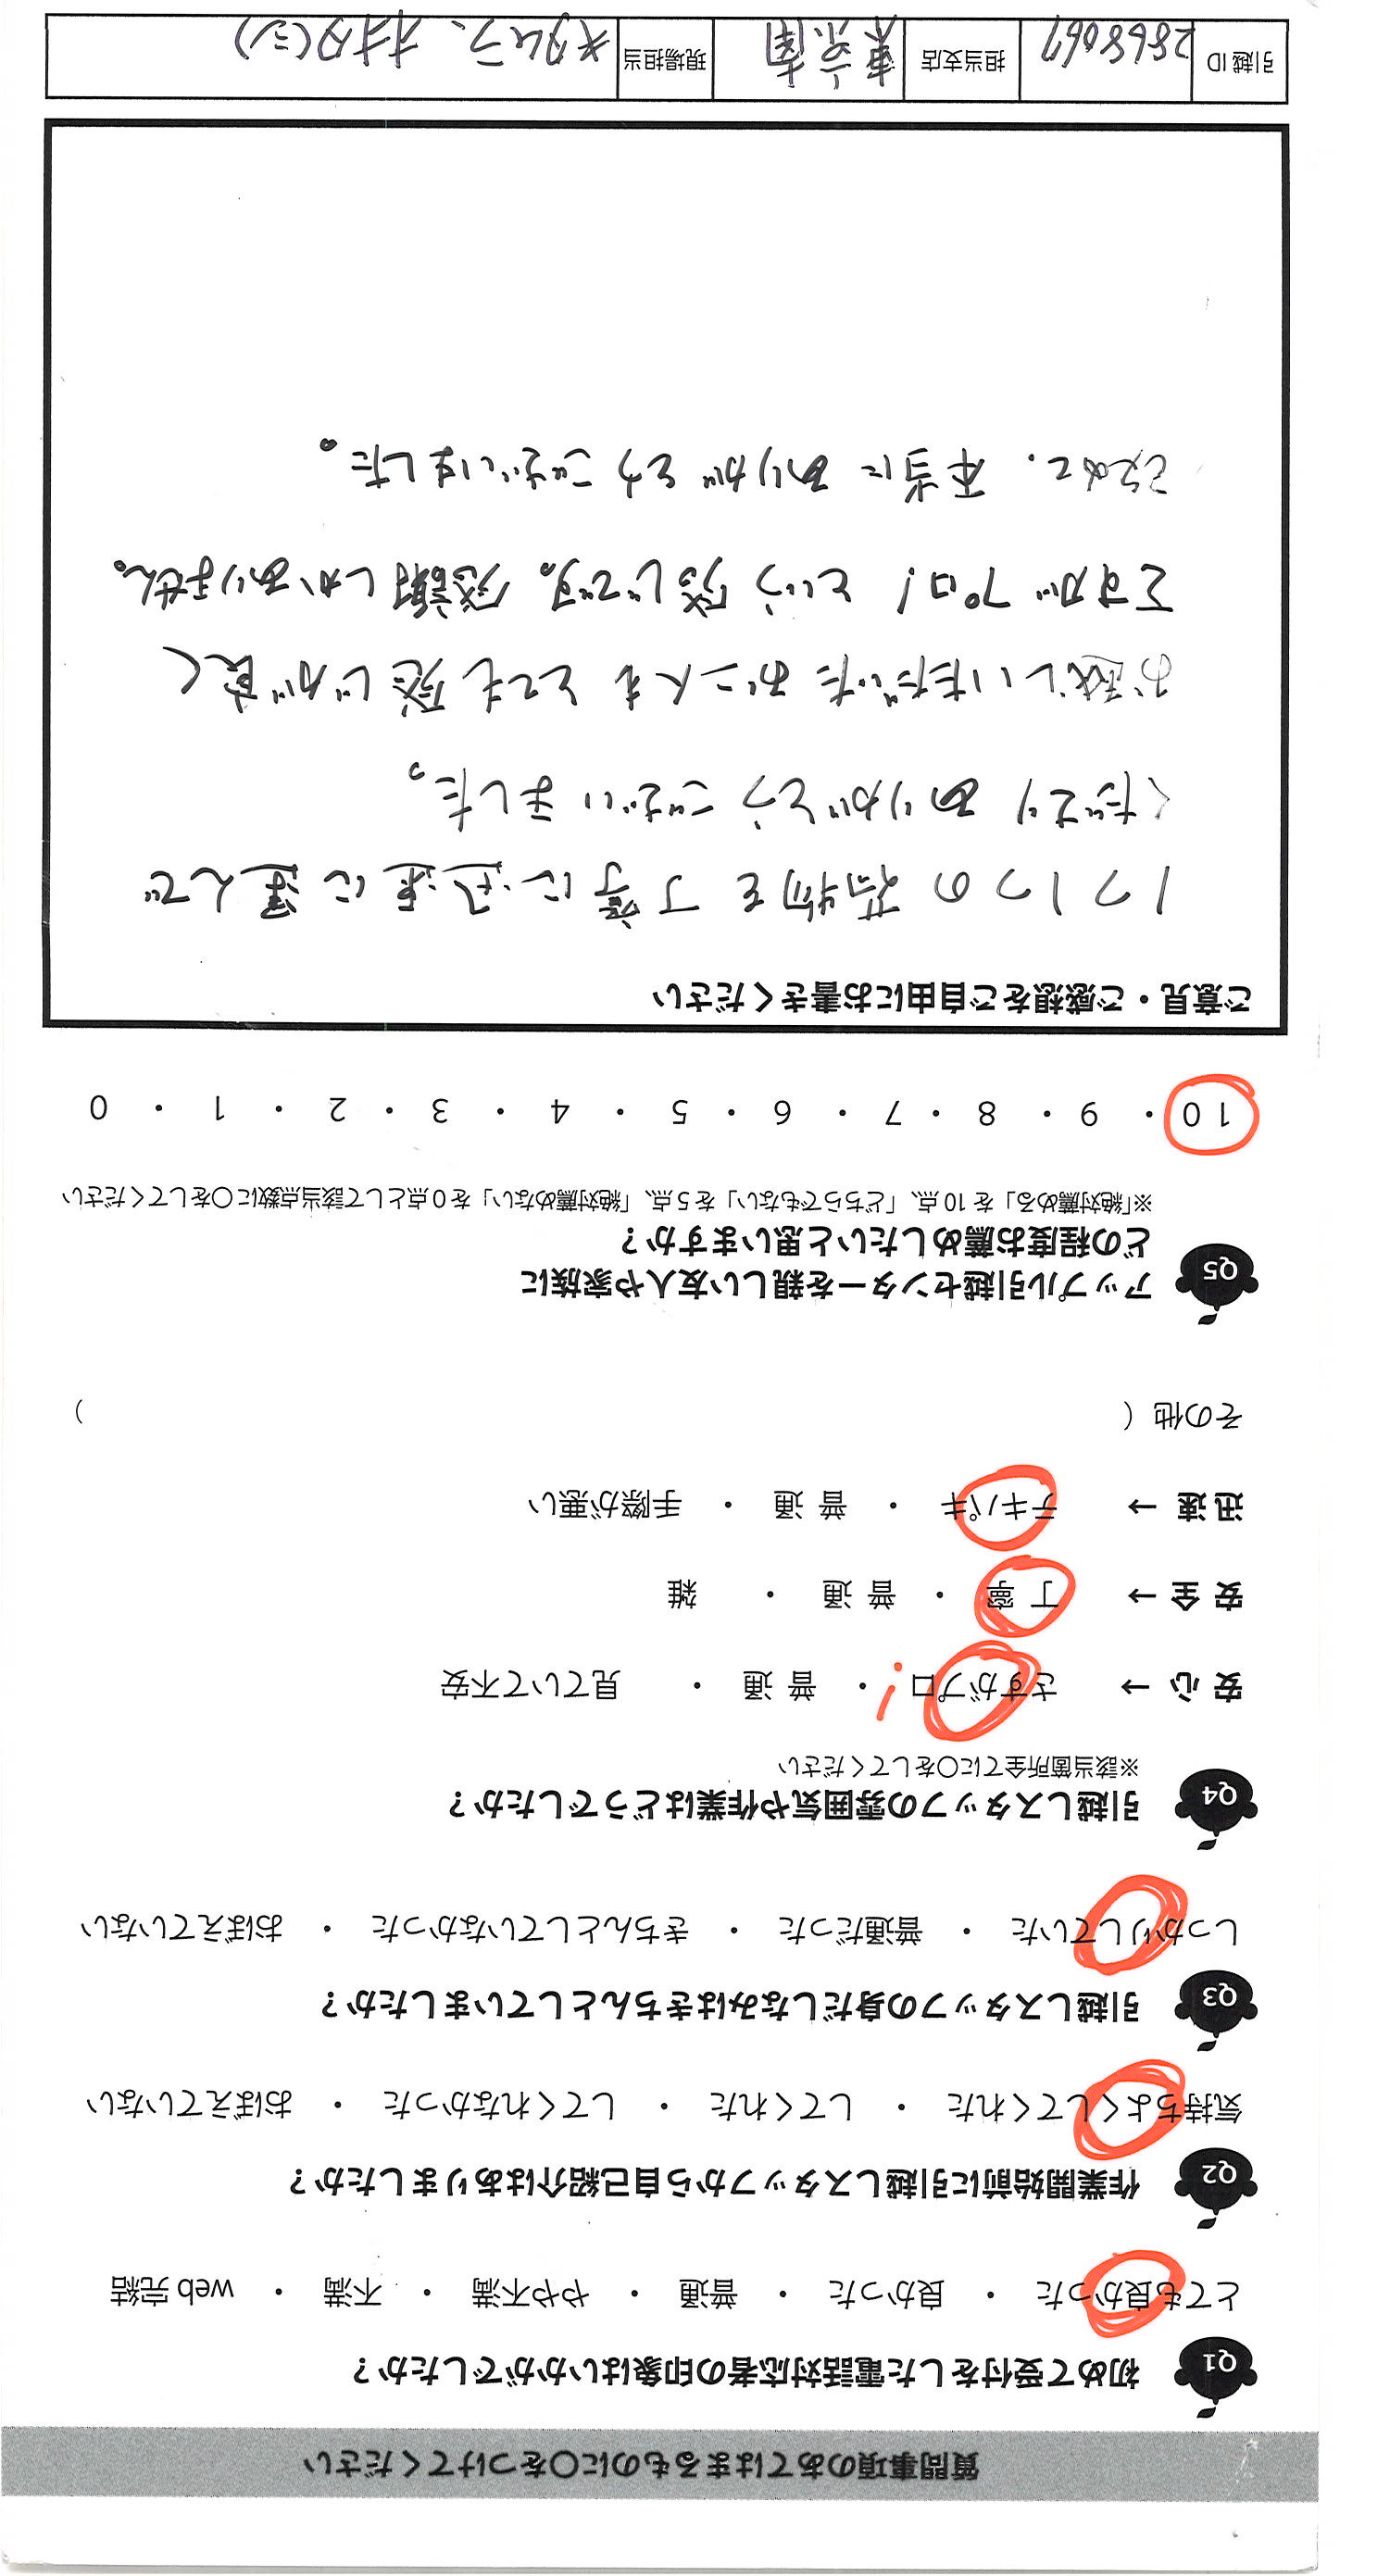 質問事項のあてはまるものに○をつけてください
Q1 初めて受付をした電話対応者の印象はいかがでしたか？
とても良かった ・ 良かった ・ 普通 ・ やや不満 ・ 不満 ・ web 完結
Q2 作業開始前に引越しスタッフから自己紹介はありましたか？
気持ちよくしてくれた ・ してくれた ・ してくれなかった ・ おぼえていない
Q3 引越しスタッフの身だしなみはきちんとしていましたか？
しっかりしていた ・ 普通だった ・ きちんとしていなかった ・ おぼえていない
Q4 引越しスタッフの雰囲気や作業はどうでしたか？
※該当箇所全てに○をしてください
安心 → さすがプロ！ ・ 普通 ・ 見ていて不安
安全 → 丁寧 ・ 普通 ・ 雑
迅速 → テキパキ ・ 普通 ・ 手際が悪い
その他（ ）
Q5 アップル引越センターを親しい友人や家族に
どの程度お薦めしたいと思いますか？
※「絶対薦める」を 10 点、「どちらでもない」を 5 点、「絶対薦めない」を 0 点として該当点数に○をしてください
10 ・ 9 ・ 8 ・ 7 ・ 6 ・ 5 ・ 4 ・ 3 ・ 2 ・ 1 ・ 0
ご意見・ご感想をご自由にお書きください
1つ1つの荷物を丁寧に迅速に運んで
くださりありがとうございました。
お越しいただいたお二人もとても感じが良く
さすがプロ！という感じです。感謝しかありません。
改めて、本当にありがとうございました。
引越 ID 2868069 担当支店 東京南 現場担当 キタムラ、オオタ(シ)